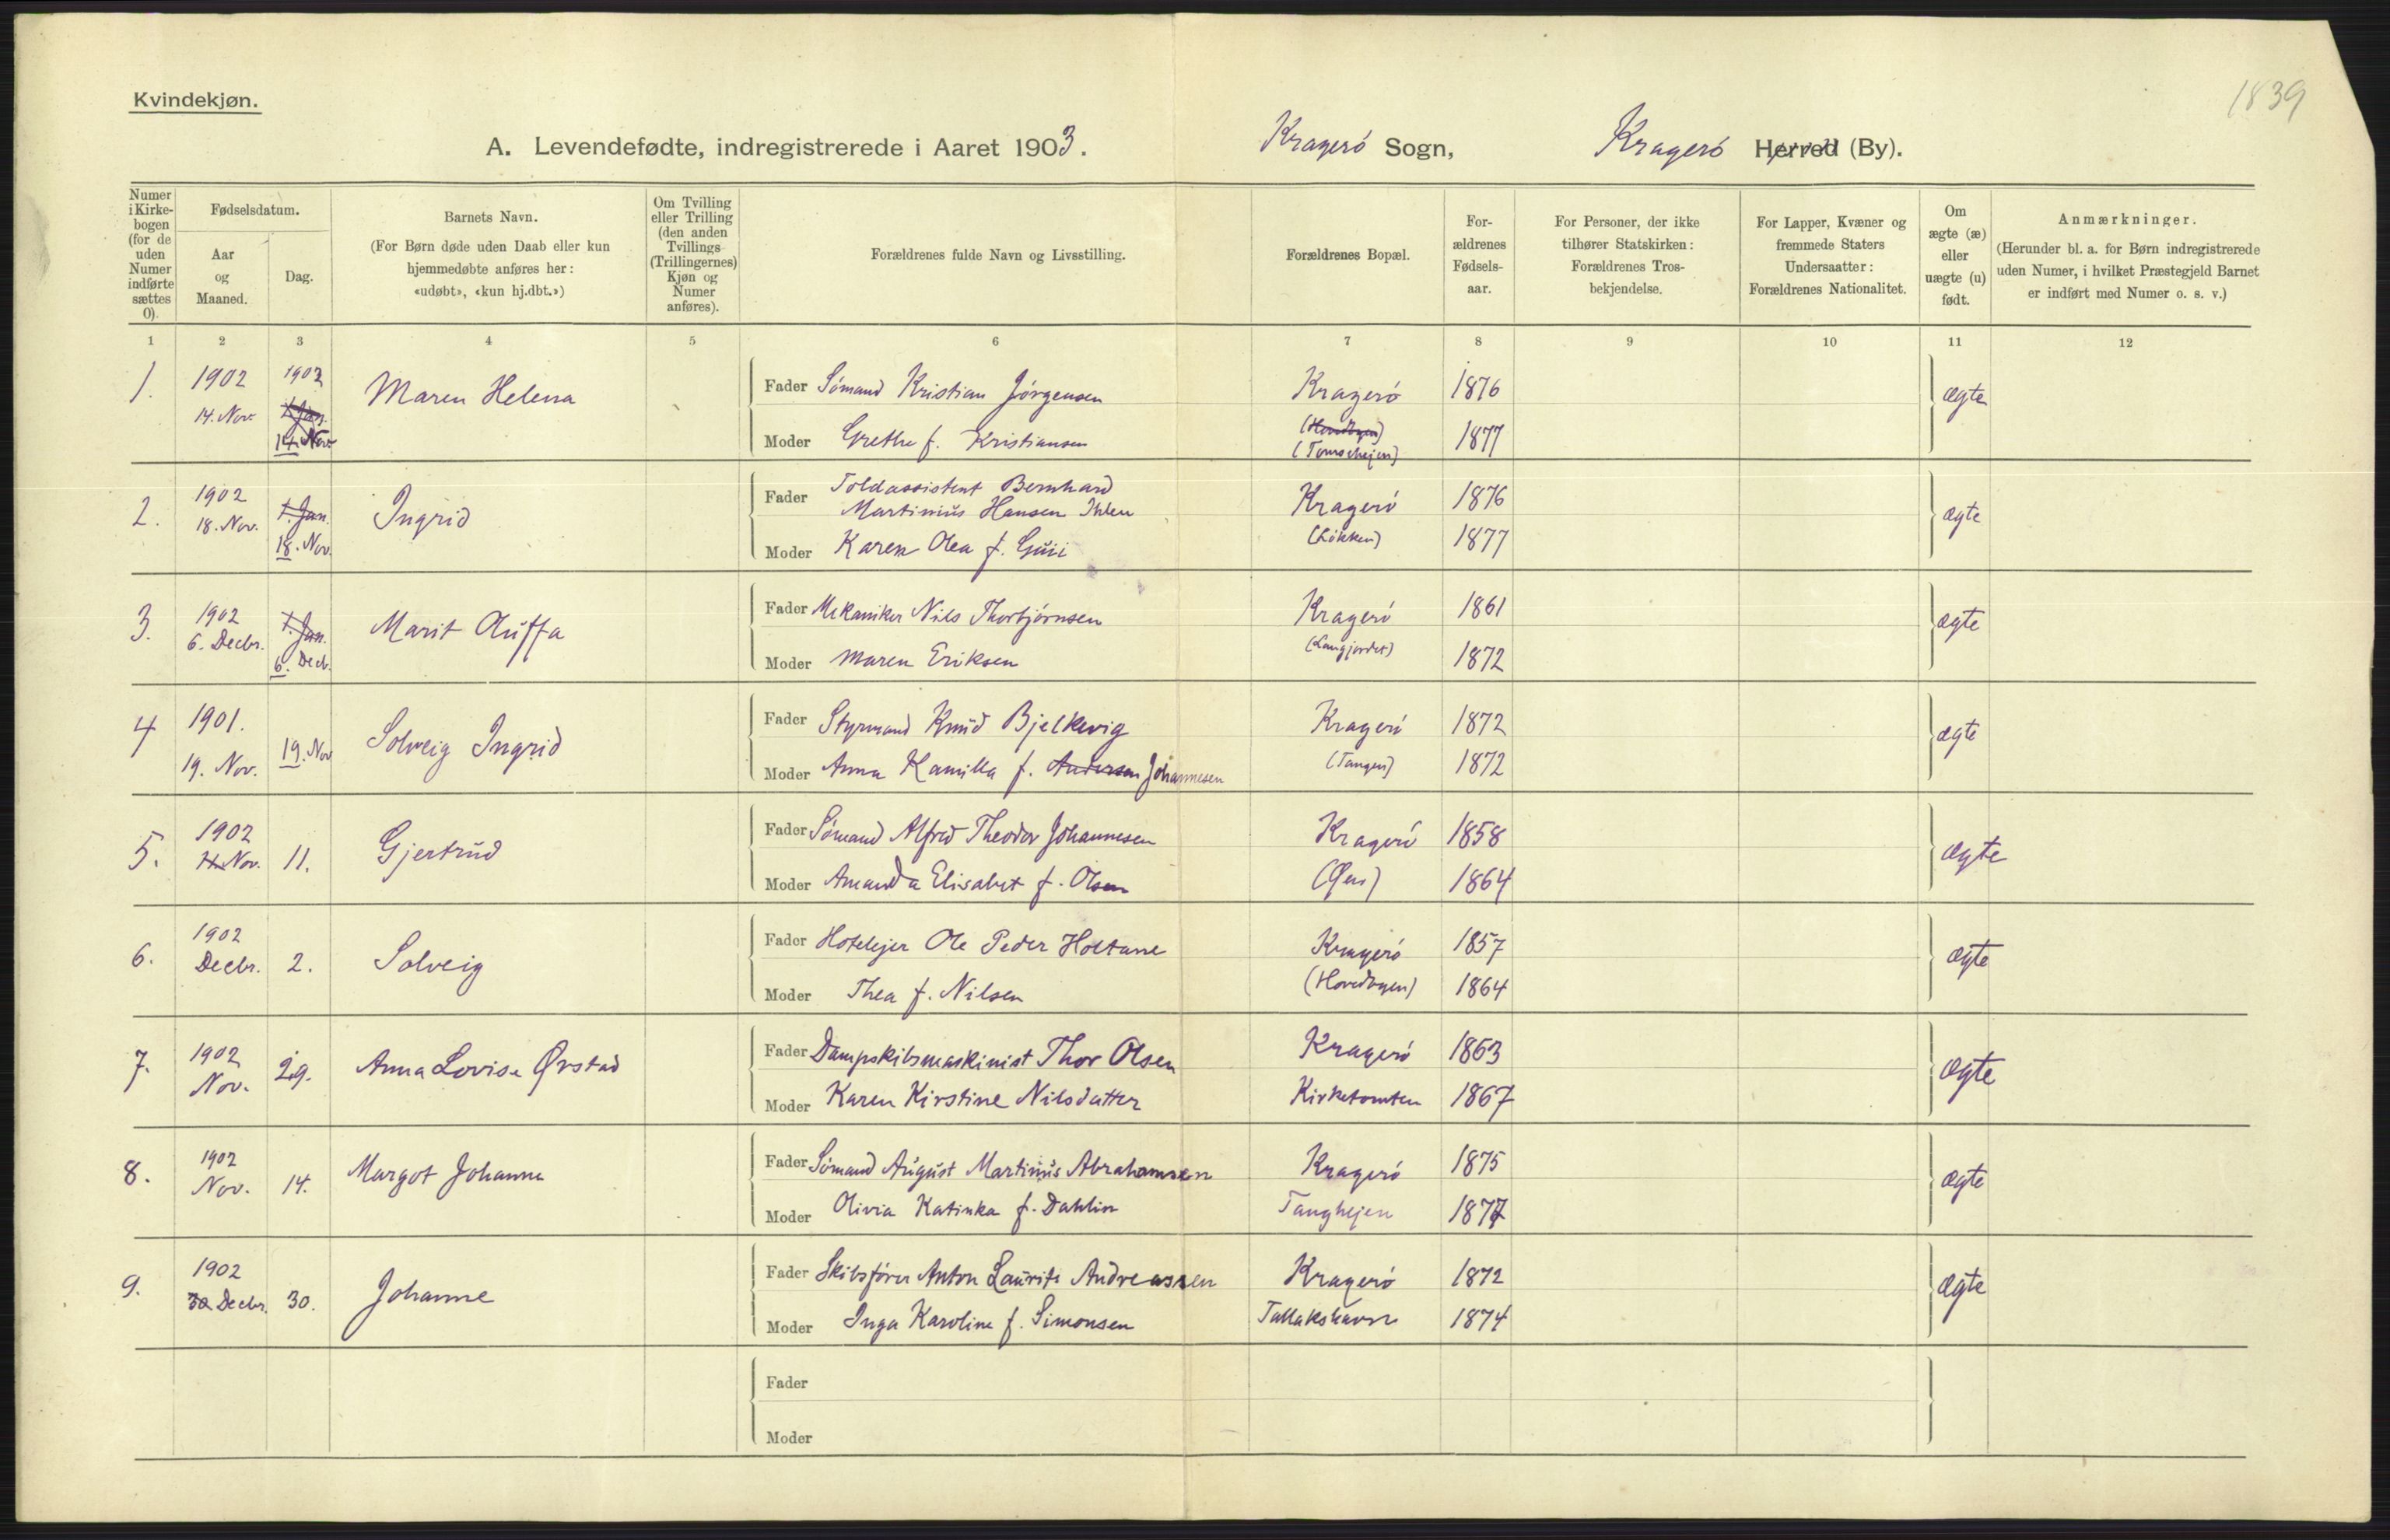 1839
Kvindekjøn.
A. Levendefødte, indregistrerede i Aaret 1903. Kragerö Sogn, Kragerö Herred (By).
Numer i Kirkebogen (for de uden Numer indførte sættes 0).
Fødselsdatum.
Aar og Maaned.
Dag.
Barnets Navn.
(For Børn døde uden Daab eller kun hjemmedøbte anføres her: «udøbt», «kun hj.dbt.»)
Om Tvilling eller Trilling (den anden Tvillings (Trillingernes) Kjøn og Numer anføres).
Forældrenes fulde Navn og Livsstilling.
Forældrenes Bopæl.
Forældrenes Fødselsaar.
For Personer, der ikke tilhører Statskirken: Forældrenes Trosbekjendelse.
For Lapper, Kvæner og fremmede Staters Undersaatter: Forældrenes Nationalitet.
Om ægte (æ) eller uægte (u) født.
Anmærkninger.
(Herunder bl. a. for Børn indregistrerede uden Numer, i hvilket Præstegjeld Barnet er indført med Numer o. s. v.)
1 2 3 4 5 6 7 8 9 10 11 12
1. 1902 1902 Maren Helena Fader Sömand Kristian Jörgensen Kragerö 1876 ægte
14. Nov. 1. Jan. 14. Nov Moder Grethe f. Kristiansen 1877
2. 1902 1. Jan. Ingrid Fader Toldassistent Bernhard
Martinius Hansen Ihlen Kragerö 1876 ægte
18. Nov. 18. Nov. Moder Karen Olea f. (Lökken) 1877
3. 1902 1. Jan. Marit Fader Mekaniker Nils Thorbjörnsen Kragerö 1861 ægte
6. Decbr. 6. Decb. Moder Maren Eriksen 1872
4 1901. Solveig Ingrid Fader Styrmand Knud Bjelkevig Kragerö 1872 ægte
19. Nov. 19. Nov Moder Anna Kamilla f. Andersen Johannesen (Tangen) 1872
5. 1902 Gjertrud Fader Sömand Alfred Theodor Johannesen Kragerö 1858 ægte
11. Nov. 11. Moder Amanda Elisabet f. Olsen 1864
6. 1902 Solveig Fader Hotelejer Ole Peder Holtane Kragerö 1857 ægte
Decbr. 2. Moder Thea f. Nilsen (Hovedbyen) 1864
7. 1902 Anna Lovise Ørstad Fader Dampskibsmaskinist Thor Olsen Kragerö 1863 ægte
Nov. 29. Moder Karen Kirstine Nilsdatter Kirketomten 1867
8. 1902 Margot Johanne Fader Sömand August Martinius Abrahamsen Kragerö 1875 ægte
Nov. 14. Moder Olivia Katinka f. Dahlin Tanghejen 1877
9. 1902 Johanne Fader Skibsförer Anton Lauritz Andreassen Kragerö 1872 ægte
30 Decbr. 30. Moder Inga Karoline f. Simonsen Tallakshavn 1874
Fader
Moder